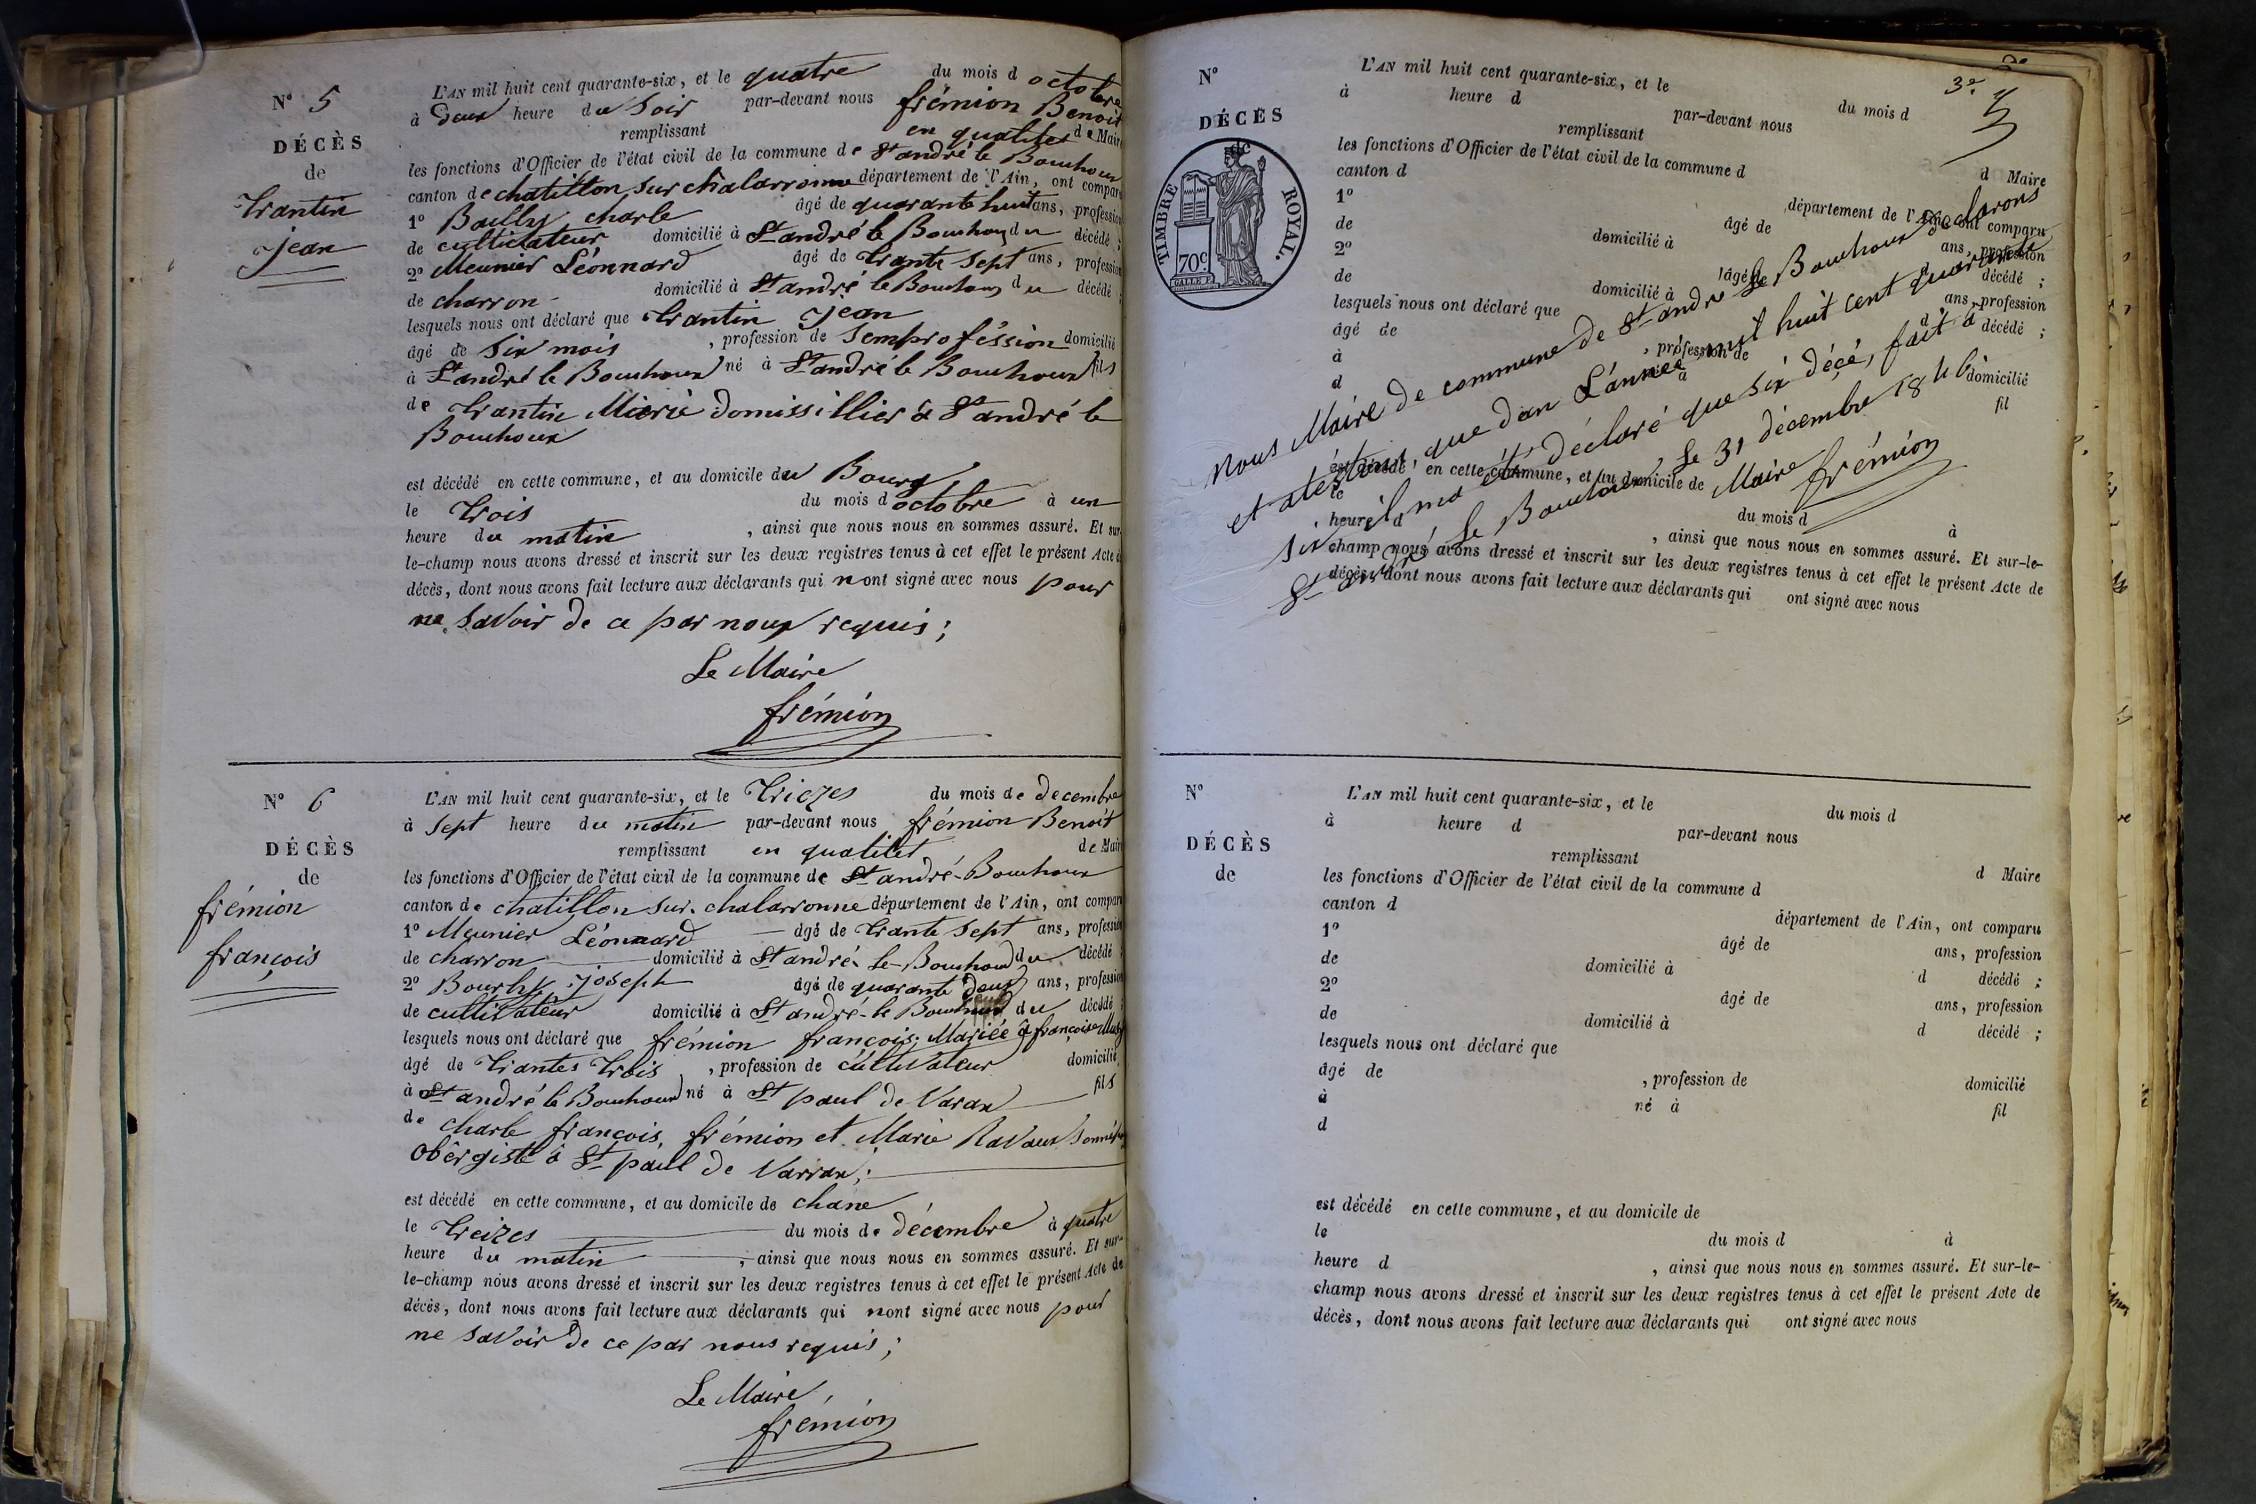 N° 5
DÉCÈS
de
Trantin
Jean
L'AN mil huit cent quarante-six, et le quatre du mois d octobre
à deux heure du Soir par-devant nous frémion Benoit
remplissant en qualitez de Maire
les fonctions d'Officier de l'état civil de la commune de St andré le Bouchoux
canton de chatillon sur chalaronne département de l'Ain, ont comparu
1° Bailly charle âgé de quarante huit ans, profession
de cultivateur domicilié à St andré le Bouchoux du décédé ;
2° Meunier Léonnard âgé de trante sept ans, profession
de charron - domicilié à St andré le Bouchoux du décédé ;
lesquels nous ont déclaré que trantin Jean
âgé de Six mois , profession de Semproféssion domicilié
à St andré le Bouchoux né à St andré le Bouchoux fils
de trantin Mierie domissillier à St andré le
Bouchoux
est décédé en cette commune, et au domicile du Bourg
le trois du mois d octobre à un
heure du matin , ainsi que nous nous en sommes assuré. Et sur-
le-champ nous avons dressé et inscrit sur les deux registres tenus à cet effet le présent Acte d
décès, dont nous avons fait lecture aux déclarants qui n ont signé avec nous pour
ne savoir de ce par nous requis ;
Le Maire
frémion
N° 6
DÉCÈS
de
frémion
françois
L'AN mil huit cent quarante-six, et le triezes du mois de decembre
à Sept heure du matin par-devant nous frémion Benoit
remplissant en qualitet de Maire
les fonctions d'Officier de l'état civil de la commune de St andré-Bouchoux
canton de chatillon sur. chalarronne département de l'Ain, ont comparu
1° Meunier Léonnard — âgé de trante sept ans, profession
de charron — domicilié à St andré le Bouchoux du décédé ;
2° Bourly joseph âgé de quarante deux ans, profession
de cultivateur domicilié à St andré-le Bouchoux du décédé ;
lesquels nous ont déclaré que frémion françois; Mariée à françoise
âgé de trantes trois , profession de cultivateur domicilié
à St andré le Bouchoux né à St paul de Varax — fils
de charle françois, frémion et Marie Ravaux
obêrgiste à St paul de Varrax; —
est décédé en cette commune, et au domicile de chane
le treizes — du mois de décembre à quatre
heure du matin — , ainsi que nous nous en sommes assuré. Et sur-
le-champ nous avons dressé et inscrit sur les deux registres tenus à cet effet le présent Acte de
décès, dont nous avons fait lecture aux déclarants qui n ont signé avec nous pour
ne savoir de ce par nous requis ;
Le Maire,
frémion
3e
N°
DÉCÈS
de
TIMBRE ROYAL.
70c
L'AN mil huit cent quarante-six, et le du mois d
à heure d par-devant nous
remplissant d Maire
les fonctions d'Officier de l'état civil de la commune d
canton d département de l'Ain, ont comparu
1° âgé de ans, profession
de domicilié à d décédé ;
2° âgé de ans, profession
de domicilié à d décédé ;
lesquels nous ont déclaré que
âgé de , profession de domicilié
à né à fil
d
est décédé en cette commune, et au domicile de
le du mois d à
heure d , ainsi que nous nous en sommes assuré. Et sur-le-
champ nous avons dressé et inscrit sur les deux registres tenus à cet effet le présent Acte de
décès, dont nous avons fait lecture aux déclarants qui ont signé avec nous
Nous Maire de commune de St andre le Bouchoux Declarons
et atestons que dan L'année mil huit cent quarante
six il ma été déclaré que six décé, fait a
St andré le Bouchoux Le 31 décembre 1846
Maire frémion
N°
DÉCÈS
de
L'AN mil huit cent quarante-six, et le du mois d
à heure d par-devant nous
remplissant d Maire
les fonctions d'Officier de l'état civil de la commune d
canton d département de l'Ain, ont comparu
1° âgé de ans, profession
de domicilié à d décédé ;
2° âgé de ans, profession
de domicilié à d décédé ;
lesquels nous ont déclaré que
âgé de , profession de domicilié
à né à fil
d
est décédé en cette commune, et au domicile de
le du mois d à
heure d , ainsi que nous nous en sommes assuré. Et sur-le-
champ nous avons dressé et inscrit sur les deux registres tenus à cet effet le présent Acte de
décès, dont nous avons fait lecture aux déclarants qui ont signé avec nous